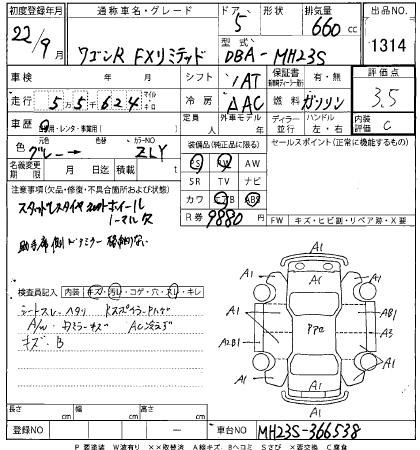 初度登録年月 通称車名・グレード ドア 形状 排気量 出品NO.
22/9月 ワゴンR FXリミテッド 5 660cc 1314
型式 DBA-MH23S
車検 年 月 シフト IAT 保証書 有・無 評価点
走行 55624 マイル キロ 冷房 AAC 燃料 ガソリン 3.5
車歴 自家用・レンタ・事業用( ) 定員 人 外車モデル 年 ディーラー 並行 ハンドル 左・右 内装 C
色 元色 グレー → 色替 カラーNO ZLY 装備品(純正品に限る) セールスポイント(正常に機能するもの)
名義変更期限 月 日 積載 t PS PW AW
SR TV ナビ
注意事項(欠品・修復・不具合箇所および状態) カワ エアB ABS
スタッドレスタイヤ R券 9880 円 FW キズ・ヒビ割・リペア跡・X要
助手席側ドアミラー格納しない
検査員記入 内装 キズ・汚レ・コゲ・穴・スレ・キレ
シートスレ・ヘタリ
A/W・ドアミラーキズ AC冷えず
キズ・B
A1
A1 A1
A1 AB1
PPα
A2B1 A3
A1 A1
A1
A1
長さ cm 幅 cm 高さ cm
登録NO ― 車台NO MH23S-366538
P 要塗装 W波有り ××取替済 A線キズ Bヘコミ Sさび ×要交換 C腐食